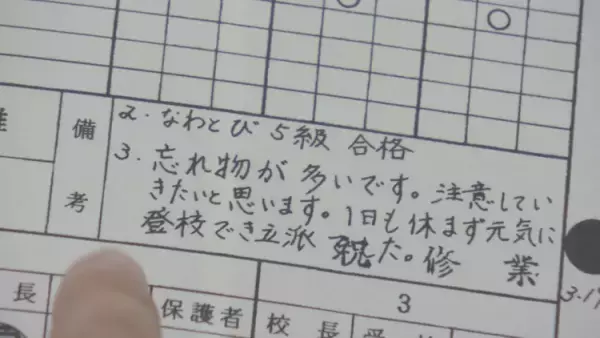 備考
2.なわとび5級 合格
3.忘れ物が多いです。注意してい
きたいと思います。1日も休まず元気に
登校でき立派 た。修業
長
保護者
3
校長
3.17